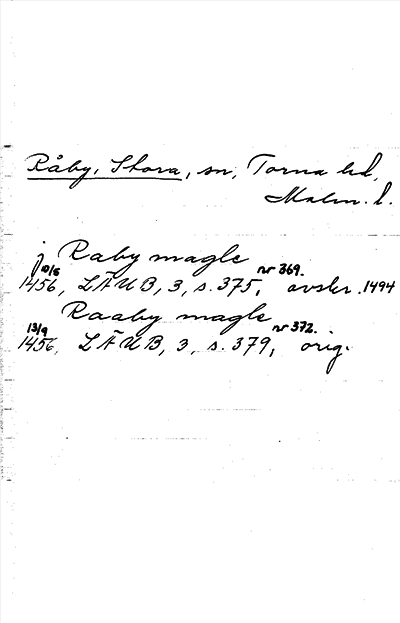 Råby, Stora, sn, Torna hd,
Malm. l.
j Raby magle
10/6 nr 369.
1456, LÄUB, 3, s. 375, avskr. 1494
Raaby magle
13/9 nr 372.
1456, LÄUB, 3, s. 379, orig.